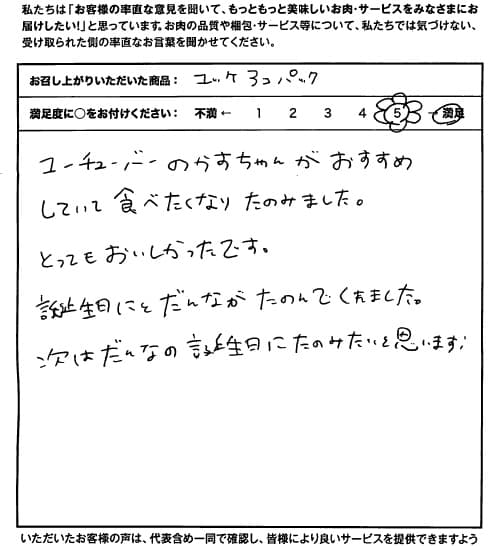 私たちは「お客様の率直な意見を聞いて、もっともっと美味しいお肉・サービスをみなさまにお
届けしたい!」と思っています。お肉の品質や梱包・サービス等について、私たちでは気づけない、
受け取られた側の率直なお言葉を聞かせてください。
お召し上がりいただいた商品： ユッケ3コパック
満足度に○をお付けください： 不満 ← 1 2 3 4 5 → 満足
ユーチューバーのかすちゃんがおすすめ
していて食べたくなりたのみました。
とってもおいしかったです。
誕生日にとだんながたのんでくれました。
次はだんなの誕生日にたのみたいと思います!
いただいたお客様の声は、代表含め一同で確認し、皆様により良いサービスを提供できますよう